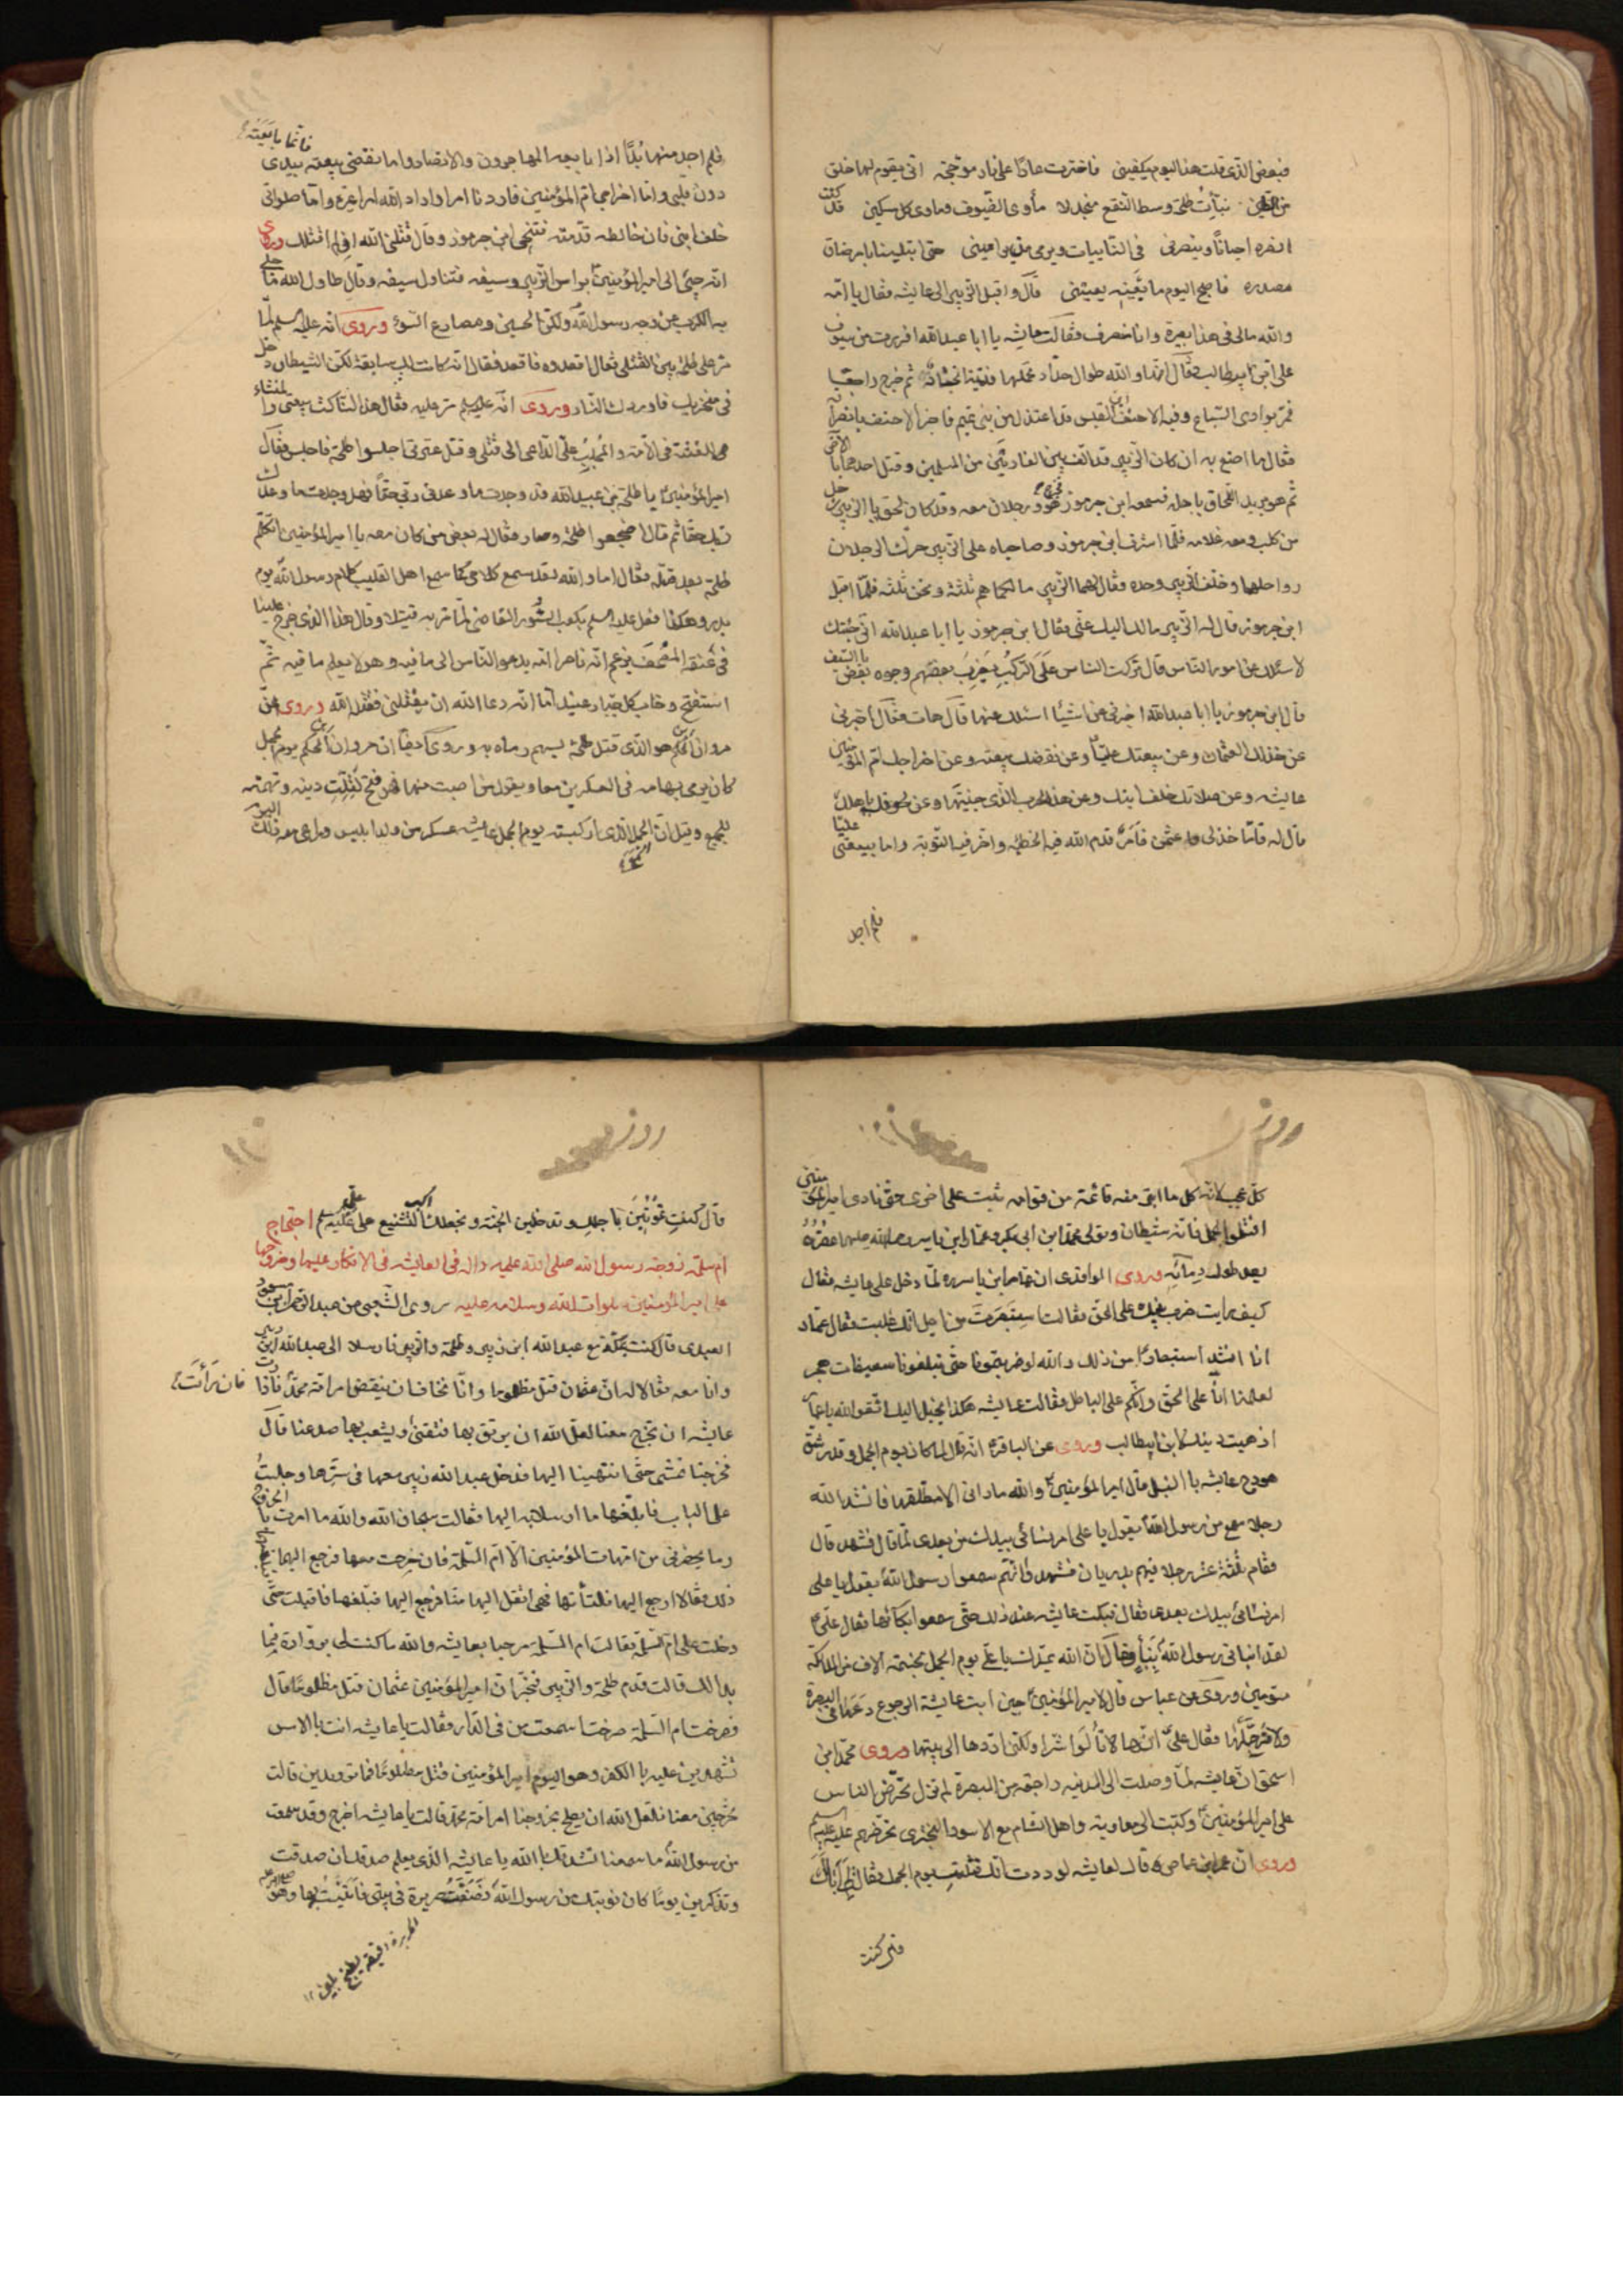 فبعض الذي قلت هذا اليوم يكفيني فاخترت عارًا على نار مؤججة انى يقوم لها خلق
من الطين نبأت طلحة وسط النقع منجدلا مأوى الضيوف ومأوى كل مسكين قد كنت
انصره احيانًا وينصرني في النائبات ويرمي من يراميني حتى ابتلينا بامر ضاق
مصدره فاصبح اليوم ما يعنيه يعنيني قال واقبل الزبير الى عايشه فقال يا امه
والله مالى في هذا بصيرة وانا منصرف فقالت عايشه يا ابا عبدالله افررت من سيوف
على بن ابيطالب فقال انها والله طوال حداد تحملها فتية انجاد ثم خرج راجعًا
فمر بوادى السباع وفيه الاحنف بن القيس قد اعتزل من بني تميم فاخبر الاحنف بانصرافه
فقال ما اصنع به ان كان الزبير قد الف بين الغارين من المسلمين وقتل احدهما بالاخر
ثم هو يريد اللحاق باهله فسمعه ابن جرموز فخرج هو ورجلان معه وقد كان لحق بالزبير رجل
من كلب ومعه غلامه فلما اشرف ابن جرموز وصاحباه على الزبير حرك الرجلان
رواحلهما وخلفا الزبير وحده فقال لهما الزبير ما لكما هم ثلثة ونحن ثلثة فلما اقبل
ابن جرموز قال له الزبير مالك اليك عنى فقال ابن جرموز يا ابا عبدالله انى جئتك
لاسئلك عن امور الناس قال تركت الناس على الركب يضرب بعضهم وجوه بعض بالسيف
قال ابن جرموز يا ابا عبدالله اخبرنى عن اشياء اسئلك عنها قال هات فقال اخبرنى
عن خذلك العثمان وعن بيعتك عليًا وعن نقضك بيعته وعن اخراجك ام المؤمنين
عايشه وعن صلاتك خلف ابنك وعن هذا الحرب الذى جنيتها وعن لحوقك باهلك
قال له فاما خذلى عثمن فامر قدم الله فيه الخطيئة واخر فيه التوبة واما بيعتى عليًا
فلم اجد
فلم اجد منها بدًا اذا بايعه المهاجرون والانصار واما نقضى بيعته فانما بايعته بيدى
دون قلبى واما اخراجى ام المؤمنين فاردنا امرا واراد الله امرا غيره واما صلواتى
خلف ابنى فان خالطه قدمته فتنحى ابن جرموز وقال قتلنى الله ان لم اقتلك وروى
انه جئ الى امير المؤمنين براس الزبير وسيفه فتناول سيفه وقال طال والله ما جلى
به الكرب عن وجه رسول الله ولكن الحين ومصارع السوء وروى انه عليه السلم لما
مر على طلحة بين القتلى فقال اقعدوه فاقعد فقال انه كانت لك سابقة لكن الشيطان دخل
فى منخريك فاوردك النار وروى انه عليه السلم مر عليه فقال هذا الناكث بيعتى والمنشاء
للفتنة فى الامة والمجلب علىّ الداعى الى قتلى وقتل عترتى اجلسوا طلحة فاجلس فقال
امير المؤمنين يا طلحة بن عبيدالله قد وجدت ما وعدنى ربى حقًا فهل وجدت ما وعدك
ربك حقا ثم قال اضجعوا طلحة وصار فقال له بعض من كان معه يا امير المؤمنين اتكلم
طلحة بعد قتله فقال اما والله لقد سمع كلامى كما سمع اهل القليب كلام رسول الله يوم
بدر وهكذا فعل عليه السلم بكعب بن سور القاضى لما مر به قتيلا وقال هذا الذى خرج علينا
فى عنقه المصحف يزعم انه ناصر امه يدعو الناس الى ما فيه وهو لا يعلم ما فيه ثم
استفتح وخاب كل جبار عنيد اما انه دعا الله ان يقتلنى فقتله الله وروى ان
مروان بن الحكم هو الذى قتل طلحة بسهم رماه به وروى ايضًا ان مروان بن الحكم يوم الجمل
كان يرمى بسهامه فى العسكرين معا ويقول من اصبت منهما فهو فتح لقلة دينه وتهمته
للجميع وقيل ان الجمل الذى اركبته يوم الجمل عايشه عسكر من ولد ابليس وراى منه ذلك اليوم
كل عجب لانه كل ما ابقى منه قائمة من قوامه ثبت على اخرى حتى نادى امير المؤمنين
اقتلوا الجمل فانه شيطان وتولى محمد ابن ابى بكر وعمار ابن ياسر رحمة الله عليهما عقره
بعد طول دمائه وروى الواقدى ان عمار ابن ياسر ره لما دخل على عايشه فقال
كيف رايت ضرب بنيك على الحق فقالت استبصرت من اجل انك غلبت فقال عمار
انا اشد استبصارًا من ذلك والله لو ضربتمونا حتى تبلغونا سعيفات هجر
لعلمنا انا على الحق وانكم على الباطل فقالت عايشه هكذا يخيل اليك اتق الله يا عمار
اذهبت دينك لابن ابيطالب وروى عن الباقر انه قال لما كان يوم الجمل وقد رشق
هودج عايشه بالنبل قال امير المؤمنين والله ما ارانى الا مطلقها فانشد الله
رجلا سمع من رسول الله يقول يا على امر نسائى بيدك من بعدى لما قال فشهد قال
فقام ثلثة عشر رجلا فيهم بدريان فشهدوا انهم سمعوا رسول الله يقول يا على
امر نسائى بيدك بعدى فقال فبكت عايشه عند ذلك حتى سمعوا بكائها فقال على
لقد انبانى رسول الله بنبأ وقال ان الله يمدك يا على يوم الجمل بخمسة الاف من الملائكة
مسومين وروى عن عباس قال لامير المؤمنين حين ابت عايشة الرجوع دعها فى البصرة
ولا ترحلها فقال على انها لا تألوا شرا ولكنى اردها الى بيتها وروى محمد ابن
اسحق ان عايشه لما وصلت الى المدينه راجعة من البصرة لم تزل تحرض الناس
على امير المؤمنين وكتبت الى معاوية واهل الشام مع الاسود البخترى تحرضهم عليه عليه السلم
وروى ان عمرو بن عاص قال لعايشه لوددت انك قتلت يوم الجمل فقالت لا ابا لك
قال كنت
قال كنت تموتين باجلك وتدخلين الجنة ونجعلك اكبر التشنيع على على عليه السلم احتجاج
ام سلمة زوجة رسول الله صلى الله عليه واله فى العايشه فى الانكار عليها وخروجها
على امير المؤمنين صلوات الله وسلامه عليه روى الشعبى عن عبدالرحمن بن مسعود
العبدى قال كنت بمكة مع عبدالله ابن زبير وطلحة والزبير فارسلا الى عبدالله ابن زبير
وانا معه فقالا له ان عثمان قتل مظلوما وانا نخاف ان ينقض امر امة محمد فان رأت
عايشه ان تخرج معنا لعل الله ان يرتق بها فتقا ويشعب بها صدعنا قال
فخرجنا نمشى حتى انتهينا اليها فدخل عبدالله زبير معها فى سترها وجلست
على الباب فابلغها ما ارسلا به اليها فقالت سبحان الله والله ما امرت بالخروج
وما يحضرنى من امهات المؤمنين الا ام السلمة فان خرجت معها فرجع اليهما فبلغهما
ذلك فقالا ارجع اليها فلتأتها فهى اثقل اليها منا فرجع اليها فبلغها فاقبلت حتى
دخلت على ام سلمة فقالت ام السلمه مرحبا بعايشه والله ما كنت لى بزوارة فما
بدالك قالت قدم طلحة والزبير فخبرا ان امير المؤمنين عثمان قتل مظلومًا قال
فصرخت ام السلمة صرختا سمعت من فى الدار فقالت يا عايشه انت بالامس
تشهدين عليه بالكفر وهو اليوم امير المؤمنين قتل مظلومًا فما تريدين قالت
تخرجين معنا فلعل الله ان يصلح بخروجنا امر امة محمد قالت يا عايشه اخرج وقد سمعت
من رسول الله ما سمعنا نشدتك بالله يا عايشه الذى يعلم صدقك ان صدقت
وتذكرين يومًا كان نوبتك من رسول الله فصنعت حريرة فى بيتى فاتيته بها وهو
الحريرة دقيقة يطبخ بلبن ١٢